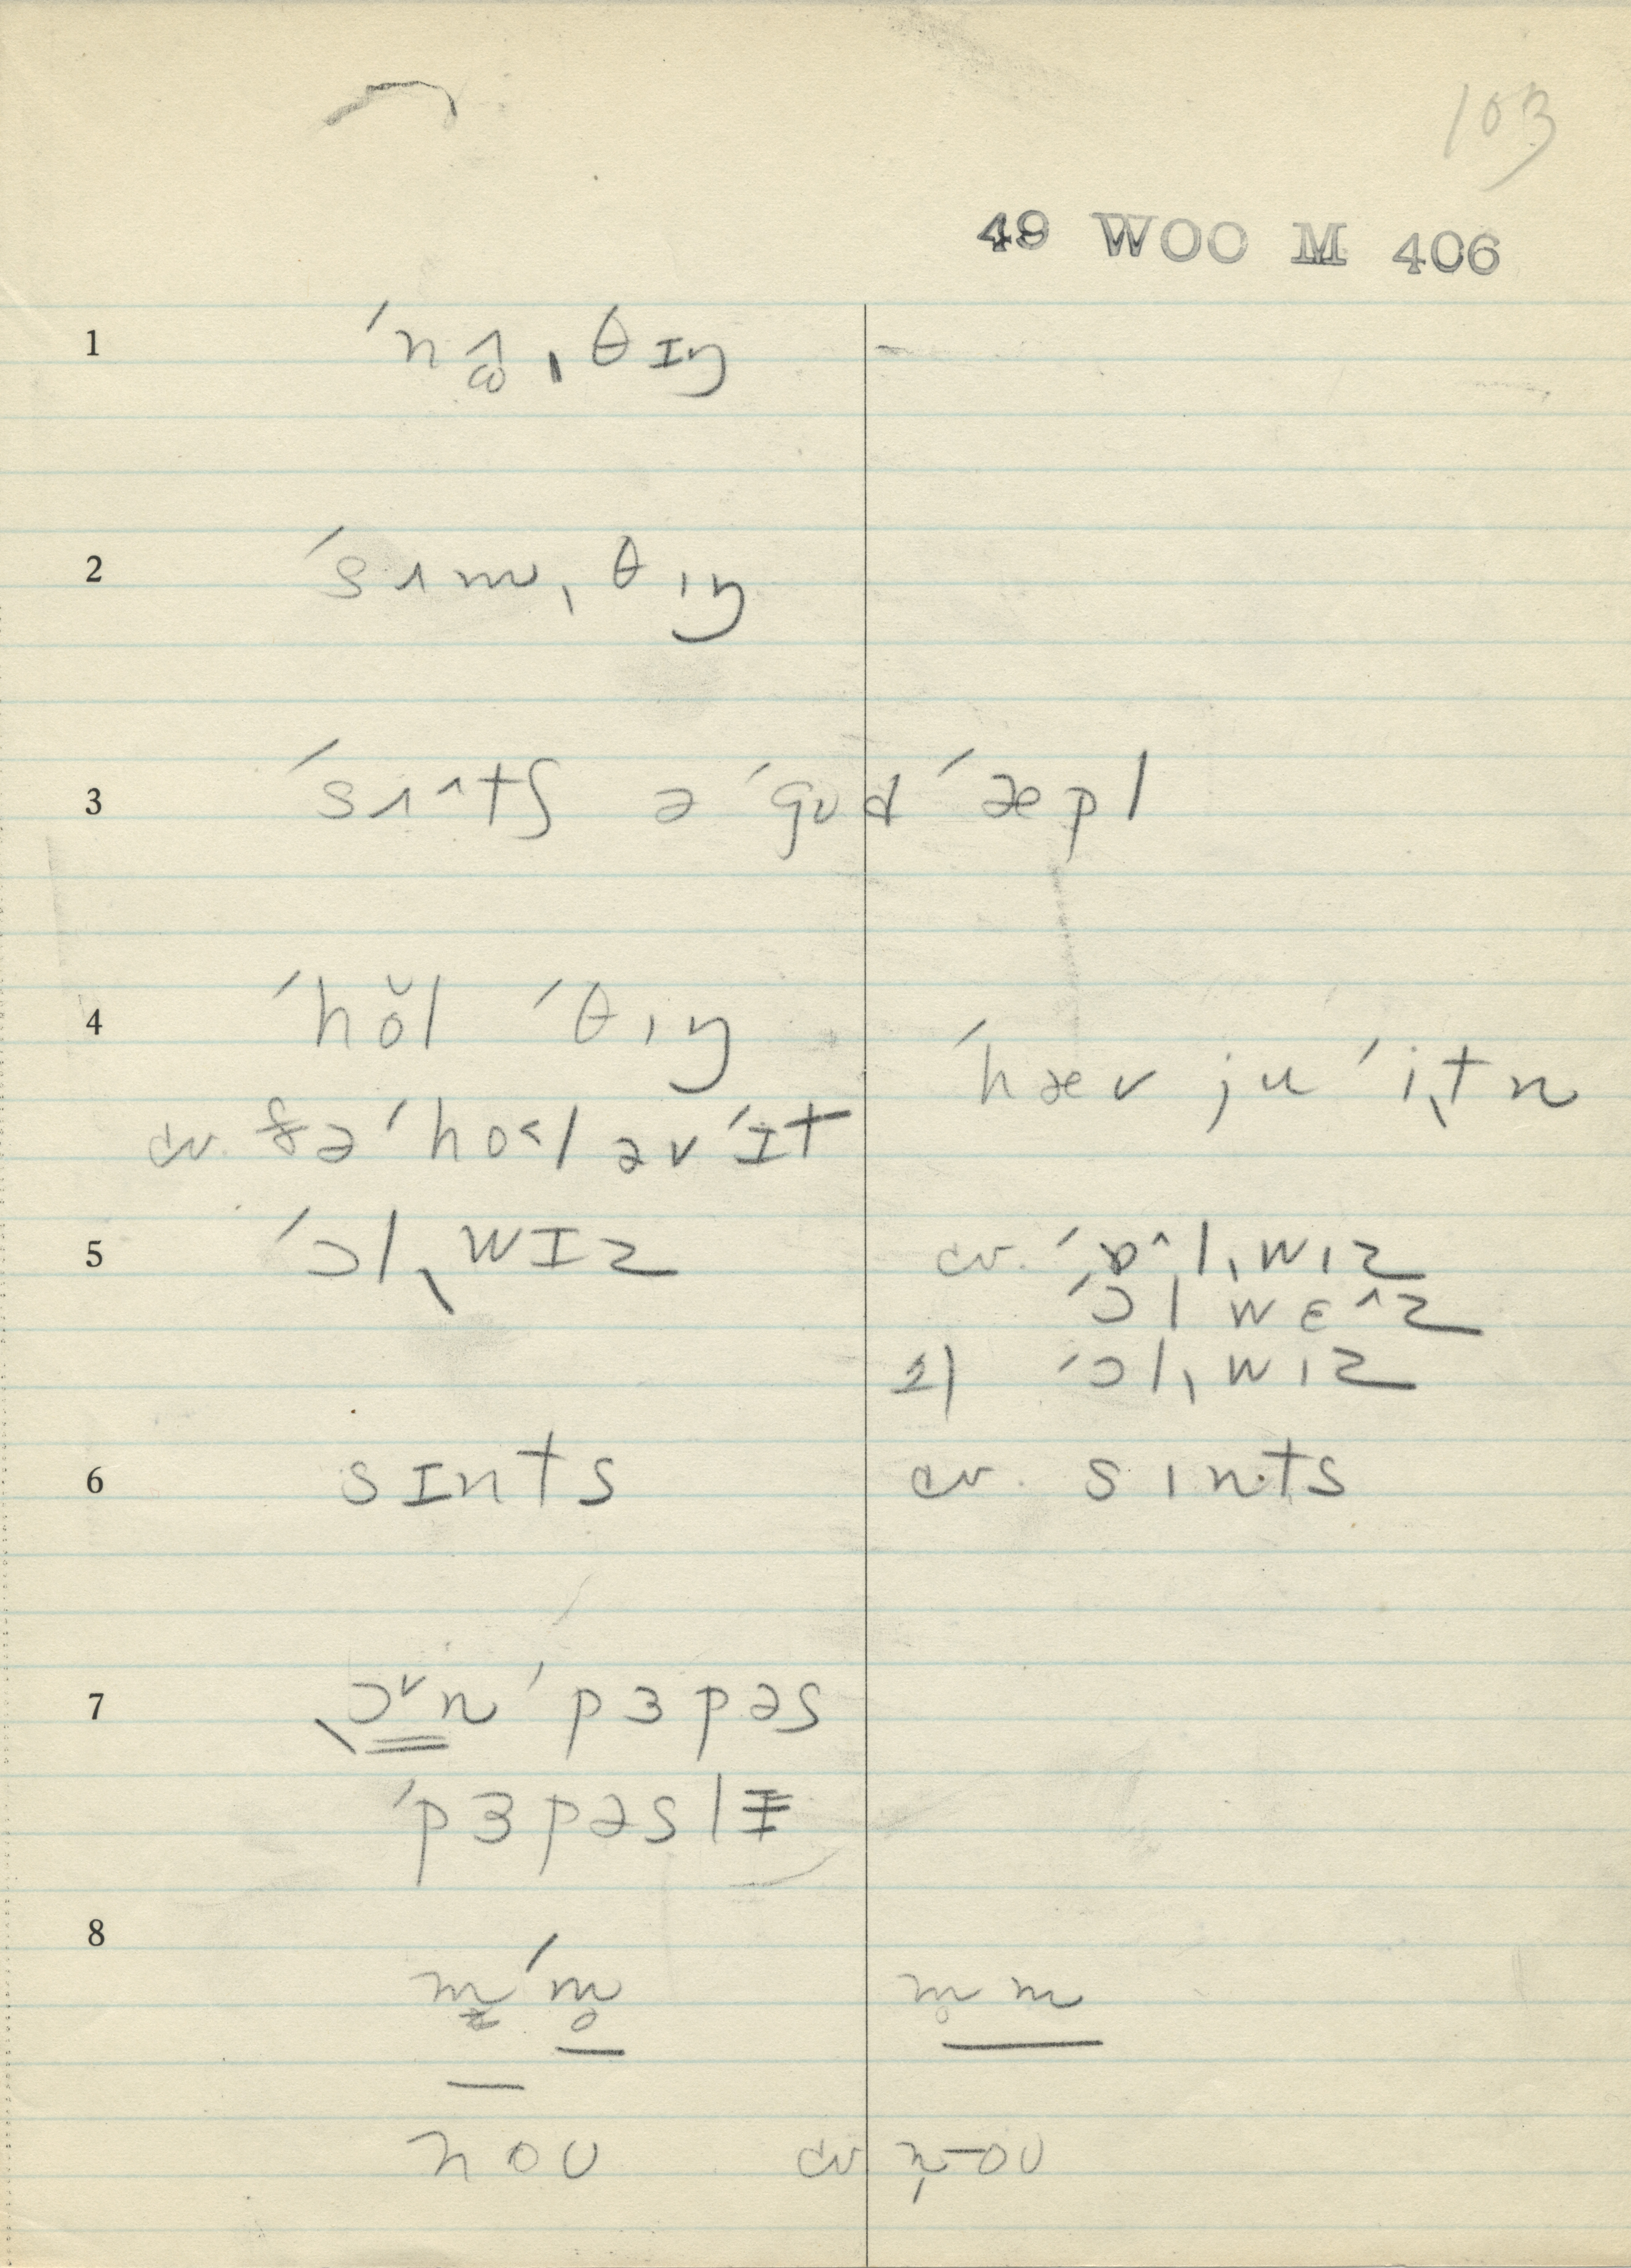 103
49 WOO M 406
1 ˈnʌ̫ˌθɪŋ -
2 ˈsʌmˌθɪŋ
3 ˈsʌ^tʃ ə ˈgʊd ˈæpl
4 ˈhŏl ˈθɪŋ
ˈhæv ju ˈiˌtn
cv. ðə ˈho˂l əv ˈɪt
5 ˈɔlˌwɪz cv. ˈɒ^lˌwɪz
ˈɔl wɛ^z
2) ˈɔlˌwɪz
6 sɪnts cv. sɪnts
7 ˌɔ˅n ˈpɜpəs
ˈpɜpəslɪ
8
m̰ ˈm̥ m̥ m
noʊ cv n̩-oʊ